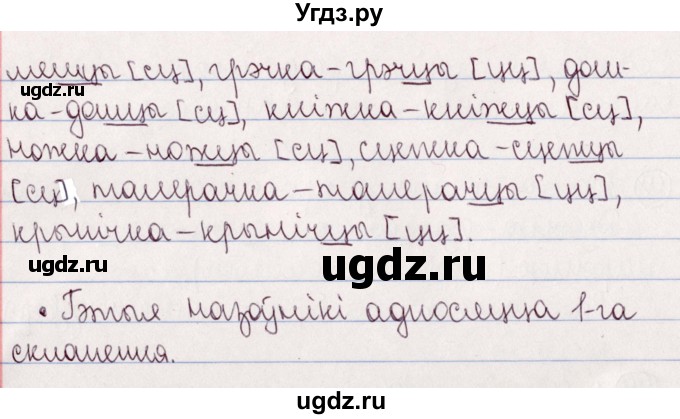 Угдз.ру
мешцы [сц], грэчка – грэчцы [цц], дош-
ugdz.ru
ка – дошцы [сц], кніжка – кніжцы [сц],
ножка – ножцы [сц], сцежка – сцежцы
[сц], талерачка – талерачцы [цц],
крынічка – крынічцы [цц].
ugdz.ru ugdz.ru
• Гэтыя назоўнікі адносяцца 1-га
скланення.
ugdz.ru